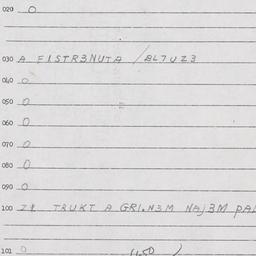 020 O
030 A FISTR3NUTA / BL7UZ3
040 O
050 O
060 O
070 O
080 O
090 O
100 TRUKT A GRI.N3M NAJ3M PAL
101 O